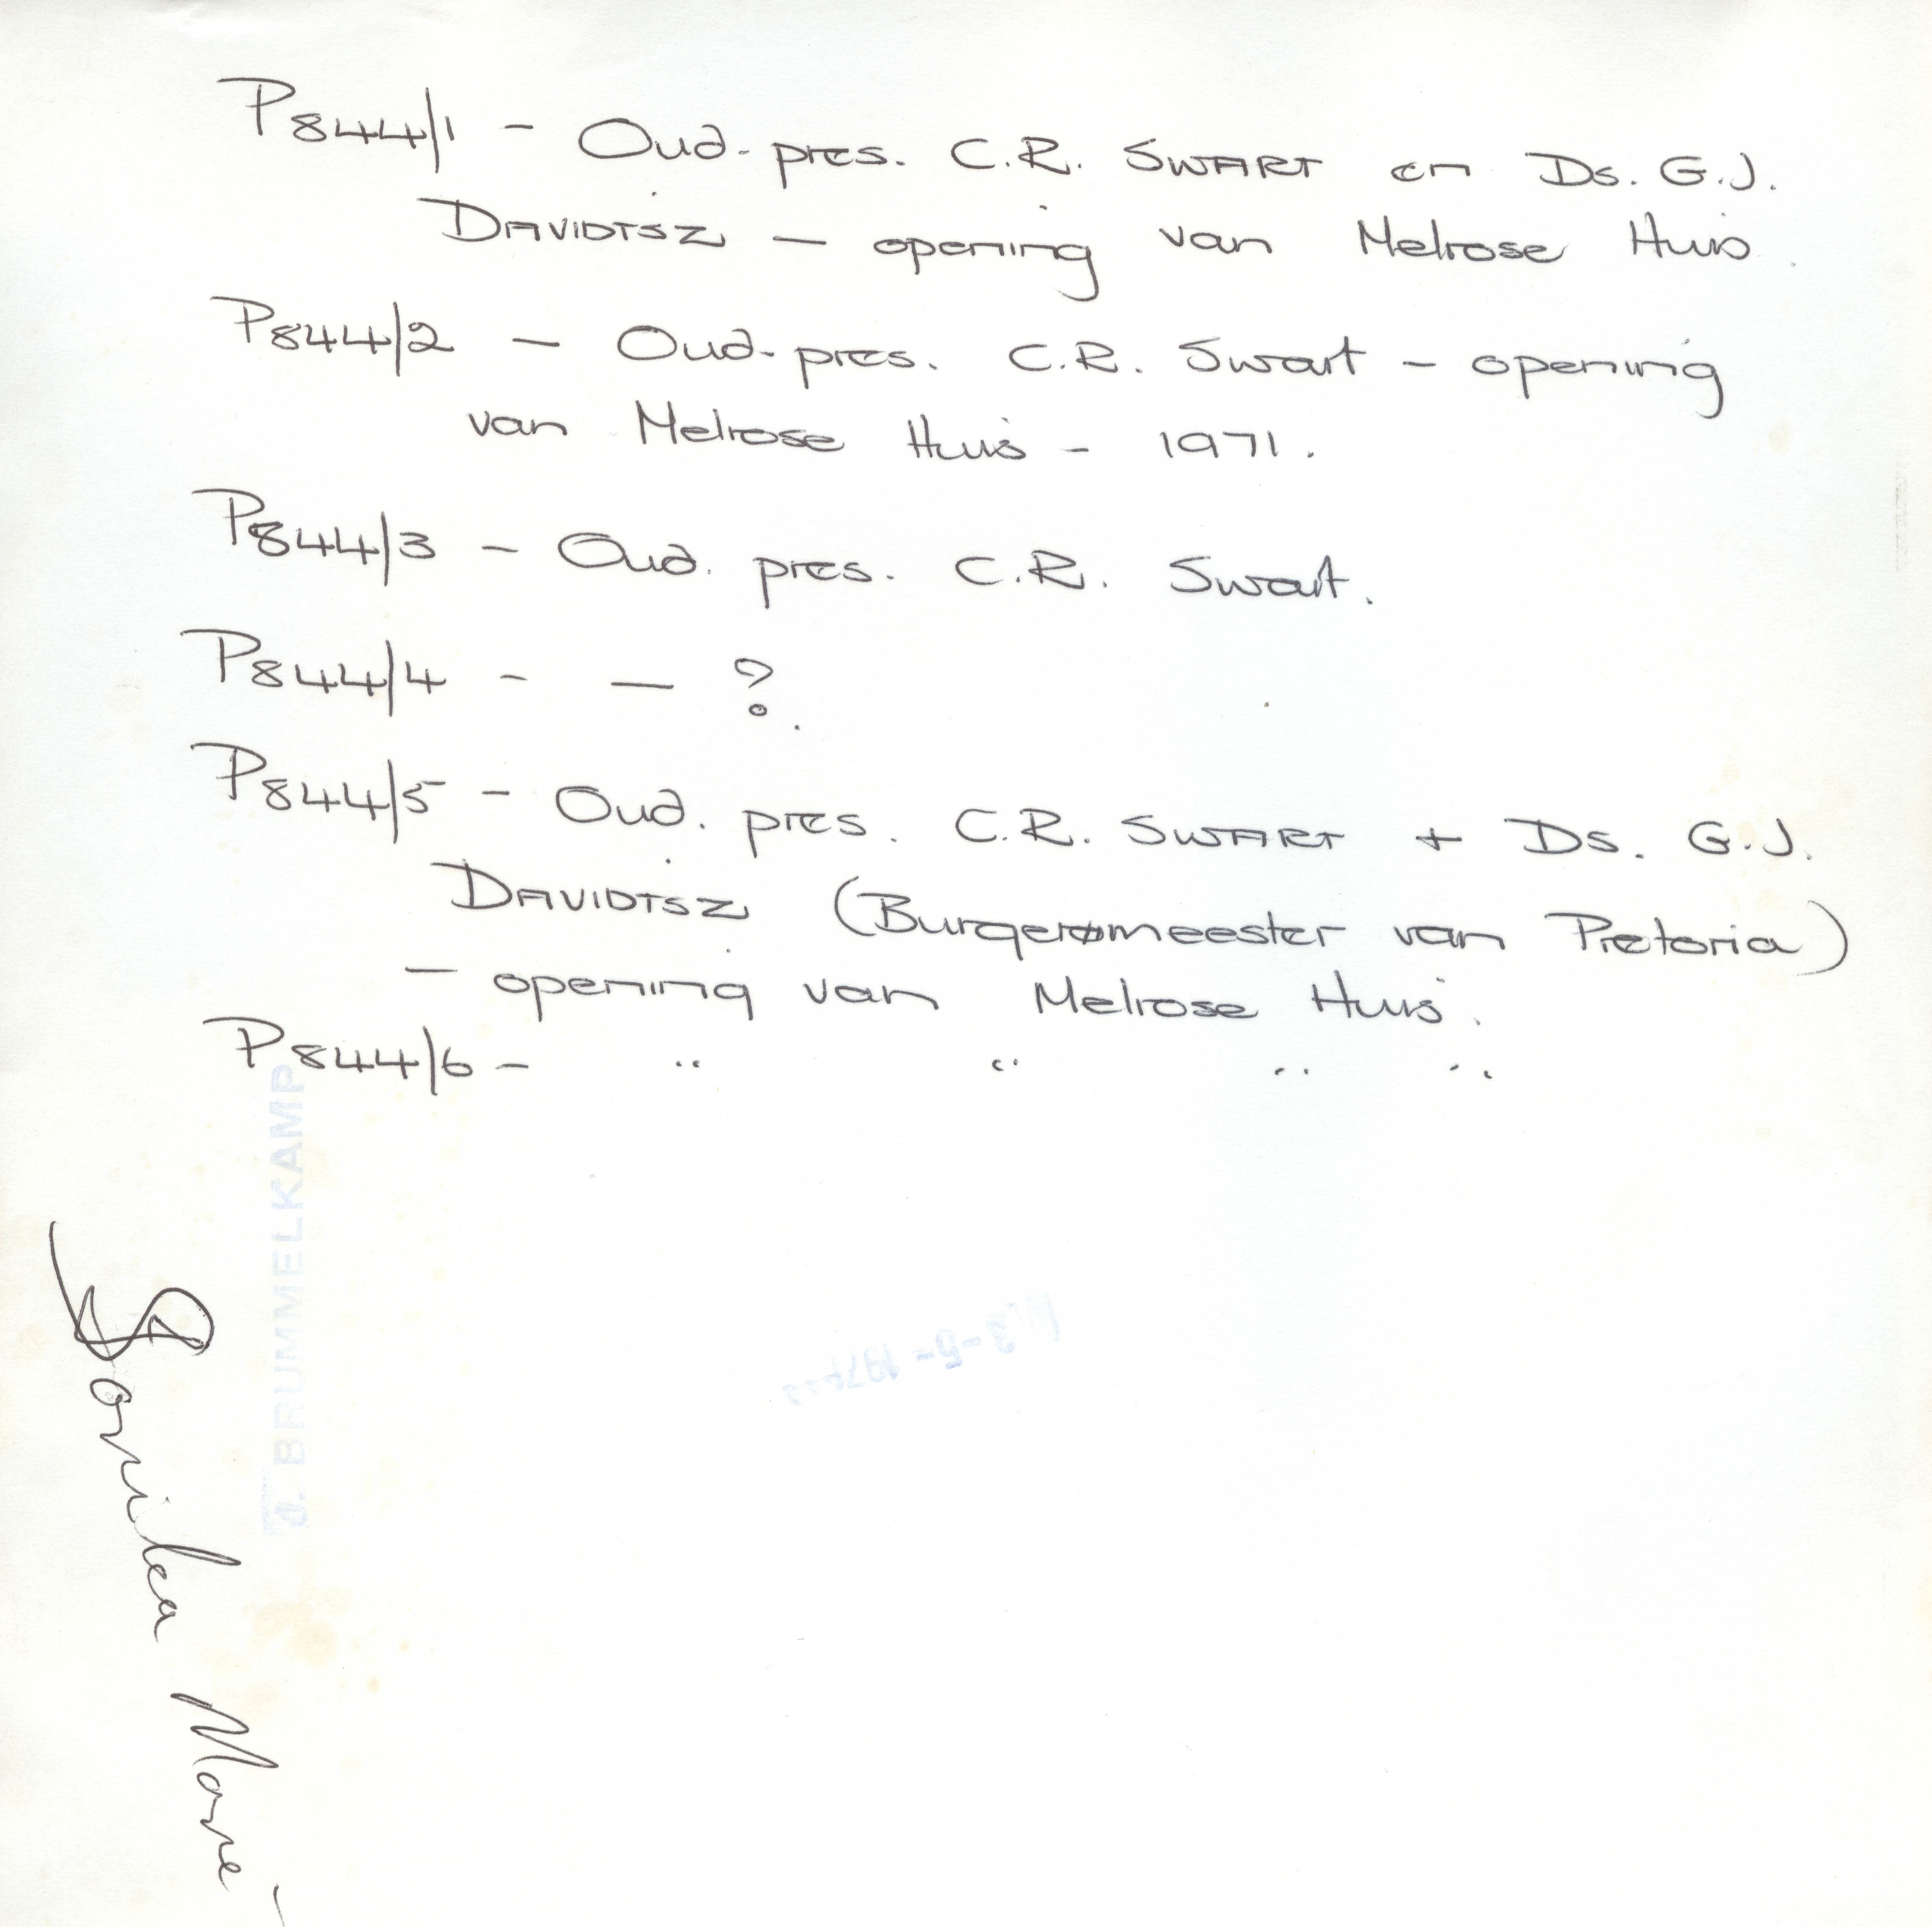 P844/1 - Oud-pres. C.R. SWART en Ds. G.J.
DAVIDTSZ — opening van Melrose Huis.
P844/2 — Oud-pres. C.R. Swart - opening
van Melrose Huis - 1971.
P844/3 - Oud. pres. C.R. Swart.
P844/4 - — ?
P844/5 - Oud. pres. C.R. SWART + Ds. G.J.
DAVIDTSZ (Burgermeester van Pretoria)
— opening van Melrose Huis.
P844/6 - " " " "
J. BRUMMELKAMP